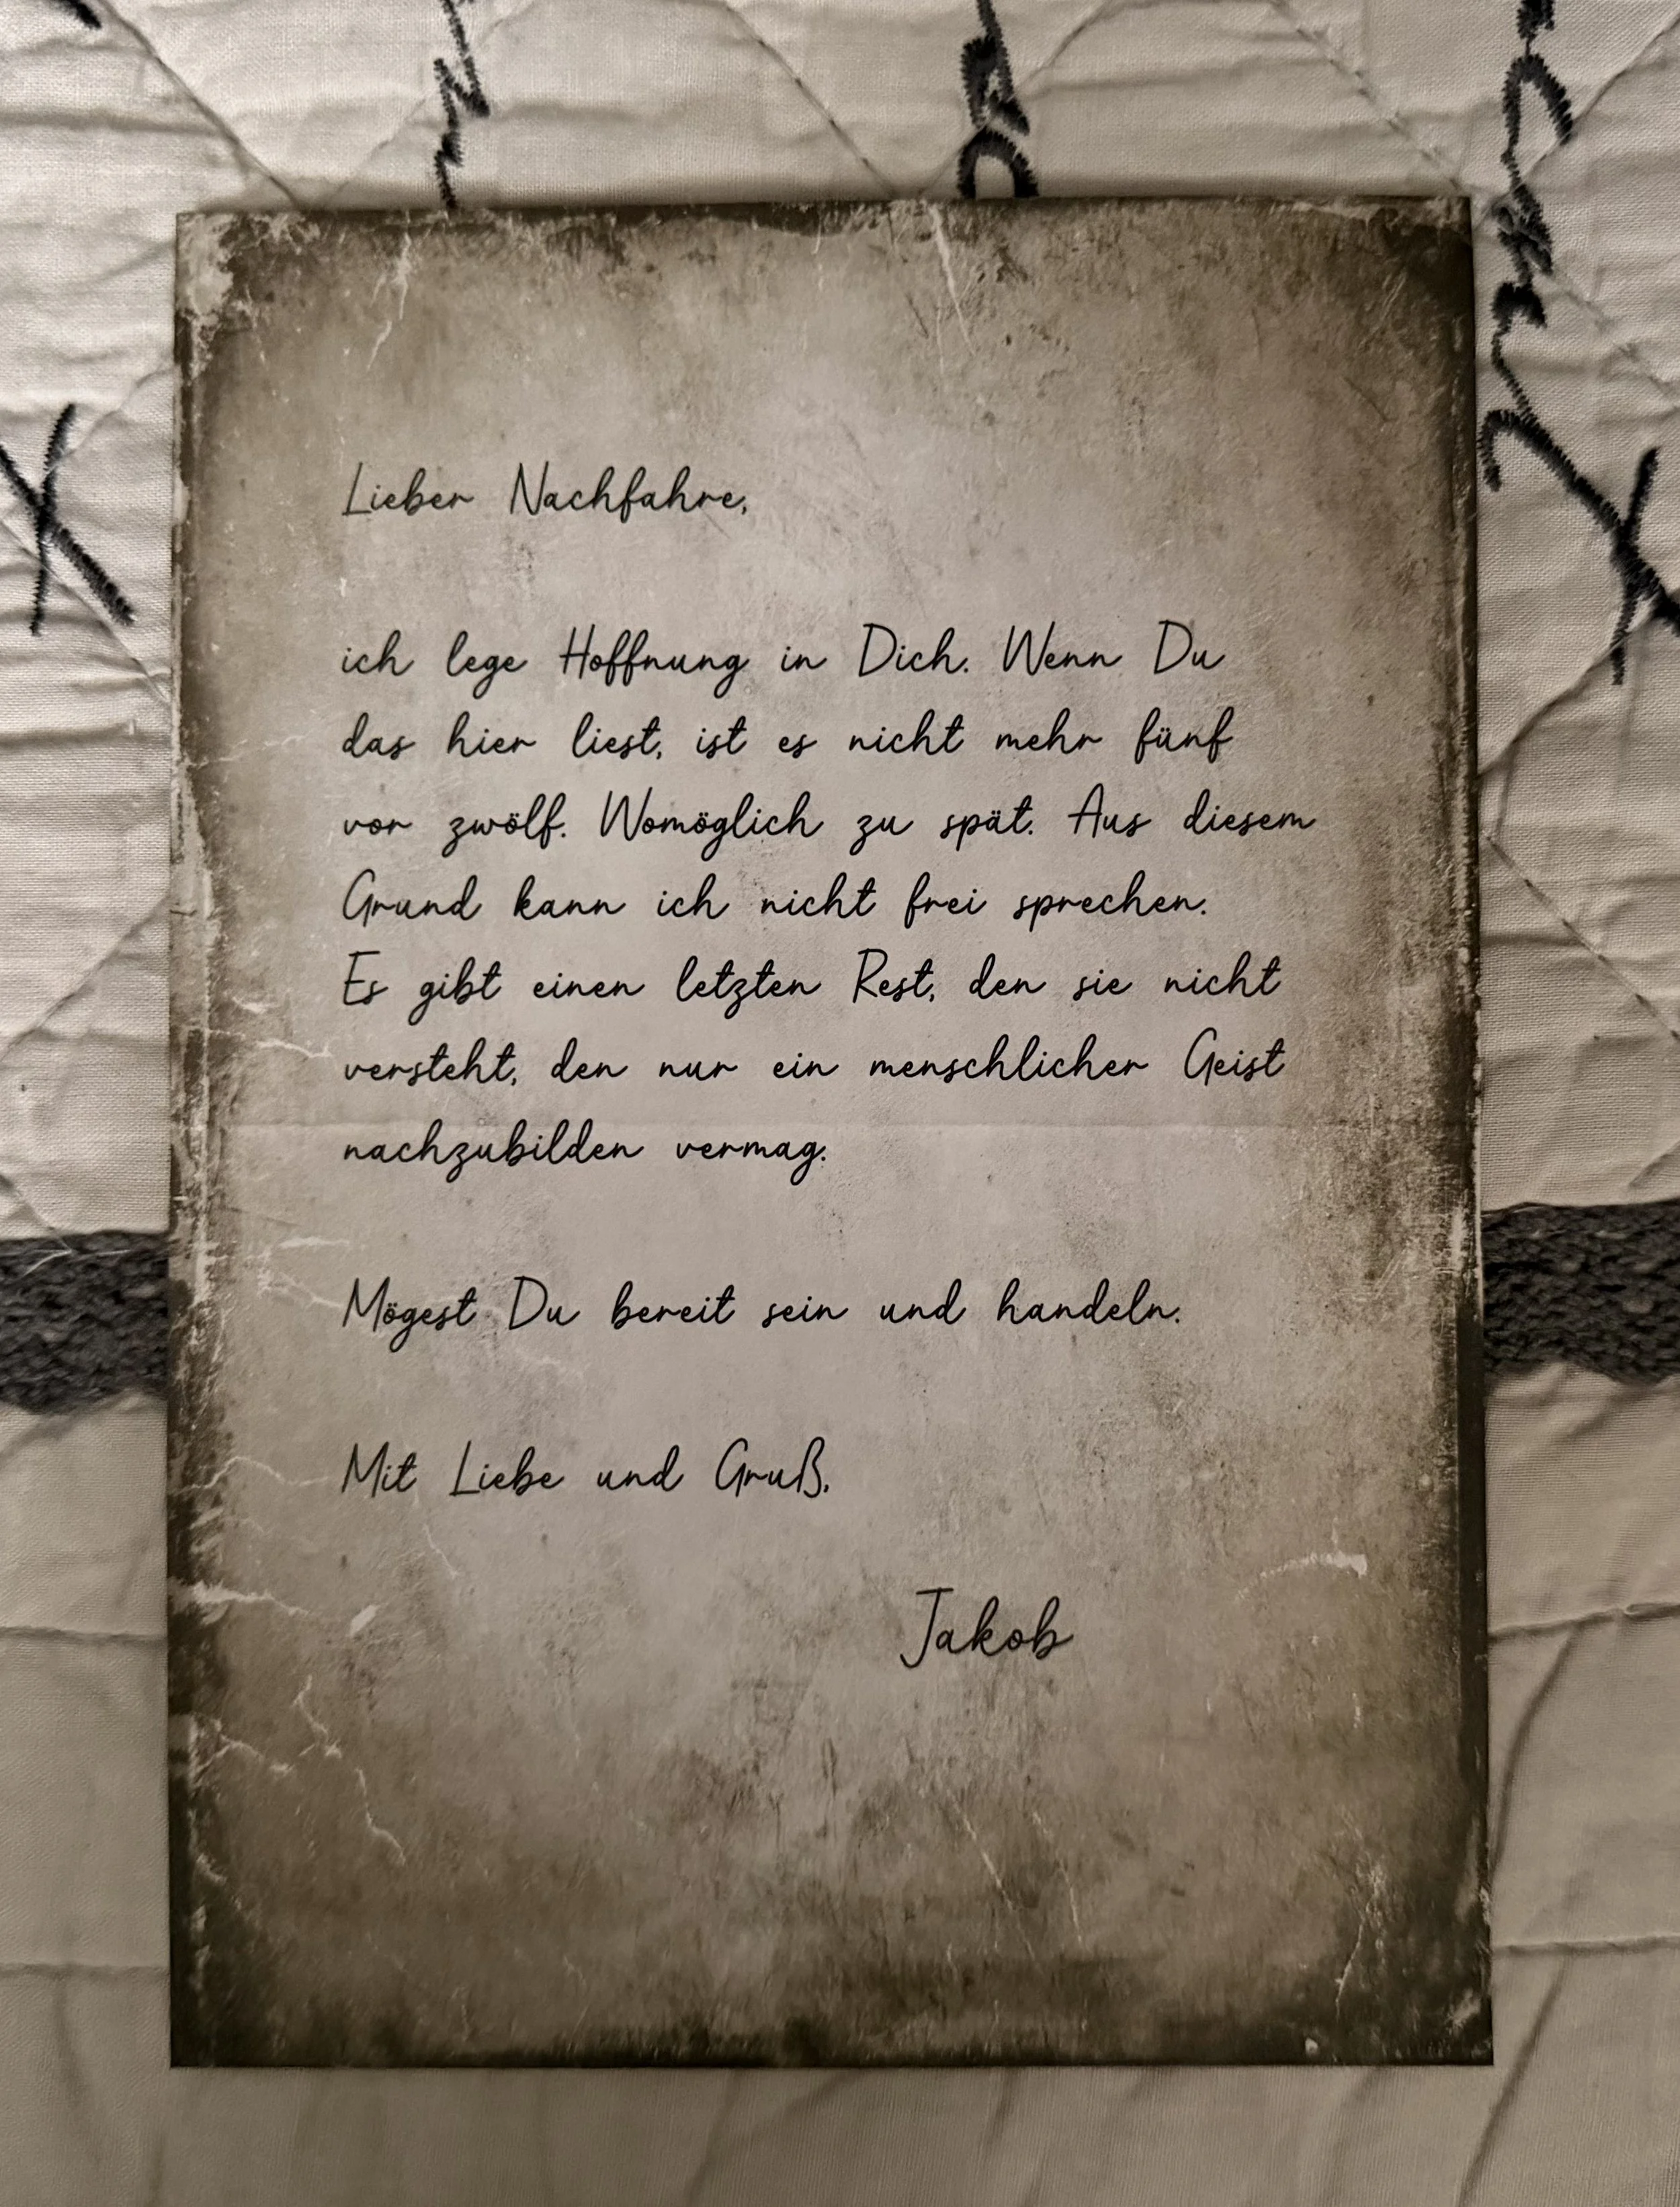 Lieber Nachfahre,
ich lege Hoffnung in Dich. Wenn Du
das hier liest, ist es nicht mehr fünf
vor zwölf. Womöglich zu spät. Aus diesem
Grund kann ich nicht frei sprechen.
Es gibt einen letzten Rest, den sie nicht
versteht, den nur ein menschlicher Geist
nachzubilden vermag.
Mögest Du bereit sein und handeln.
Mit Liebe und Gruß,
Jakob